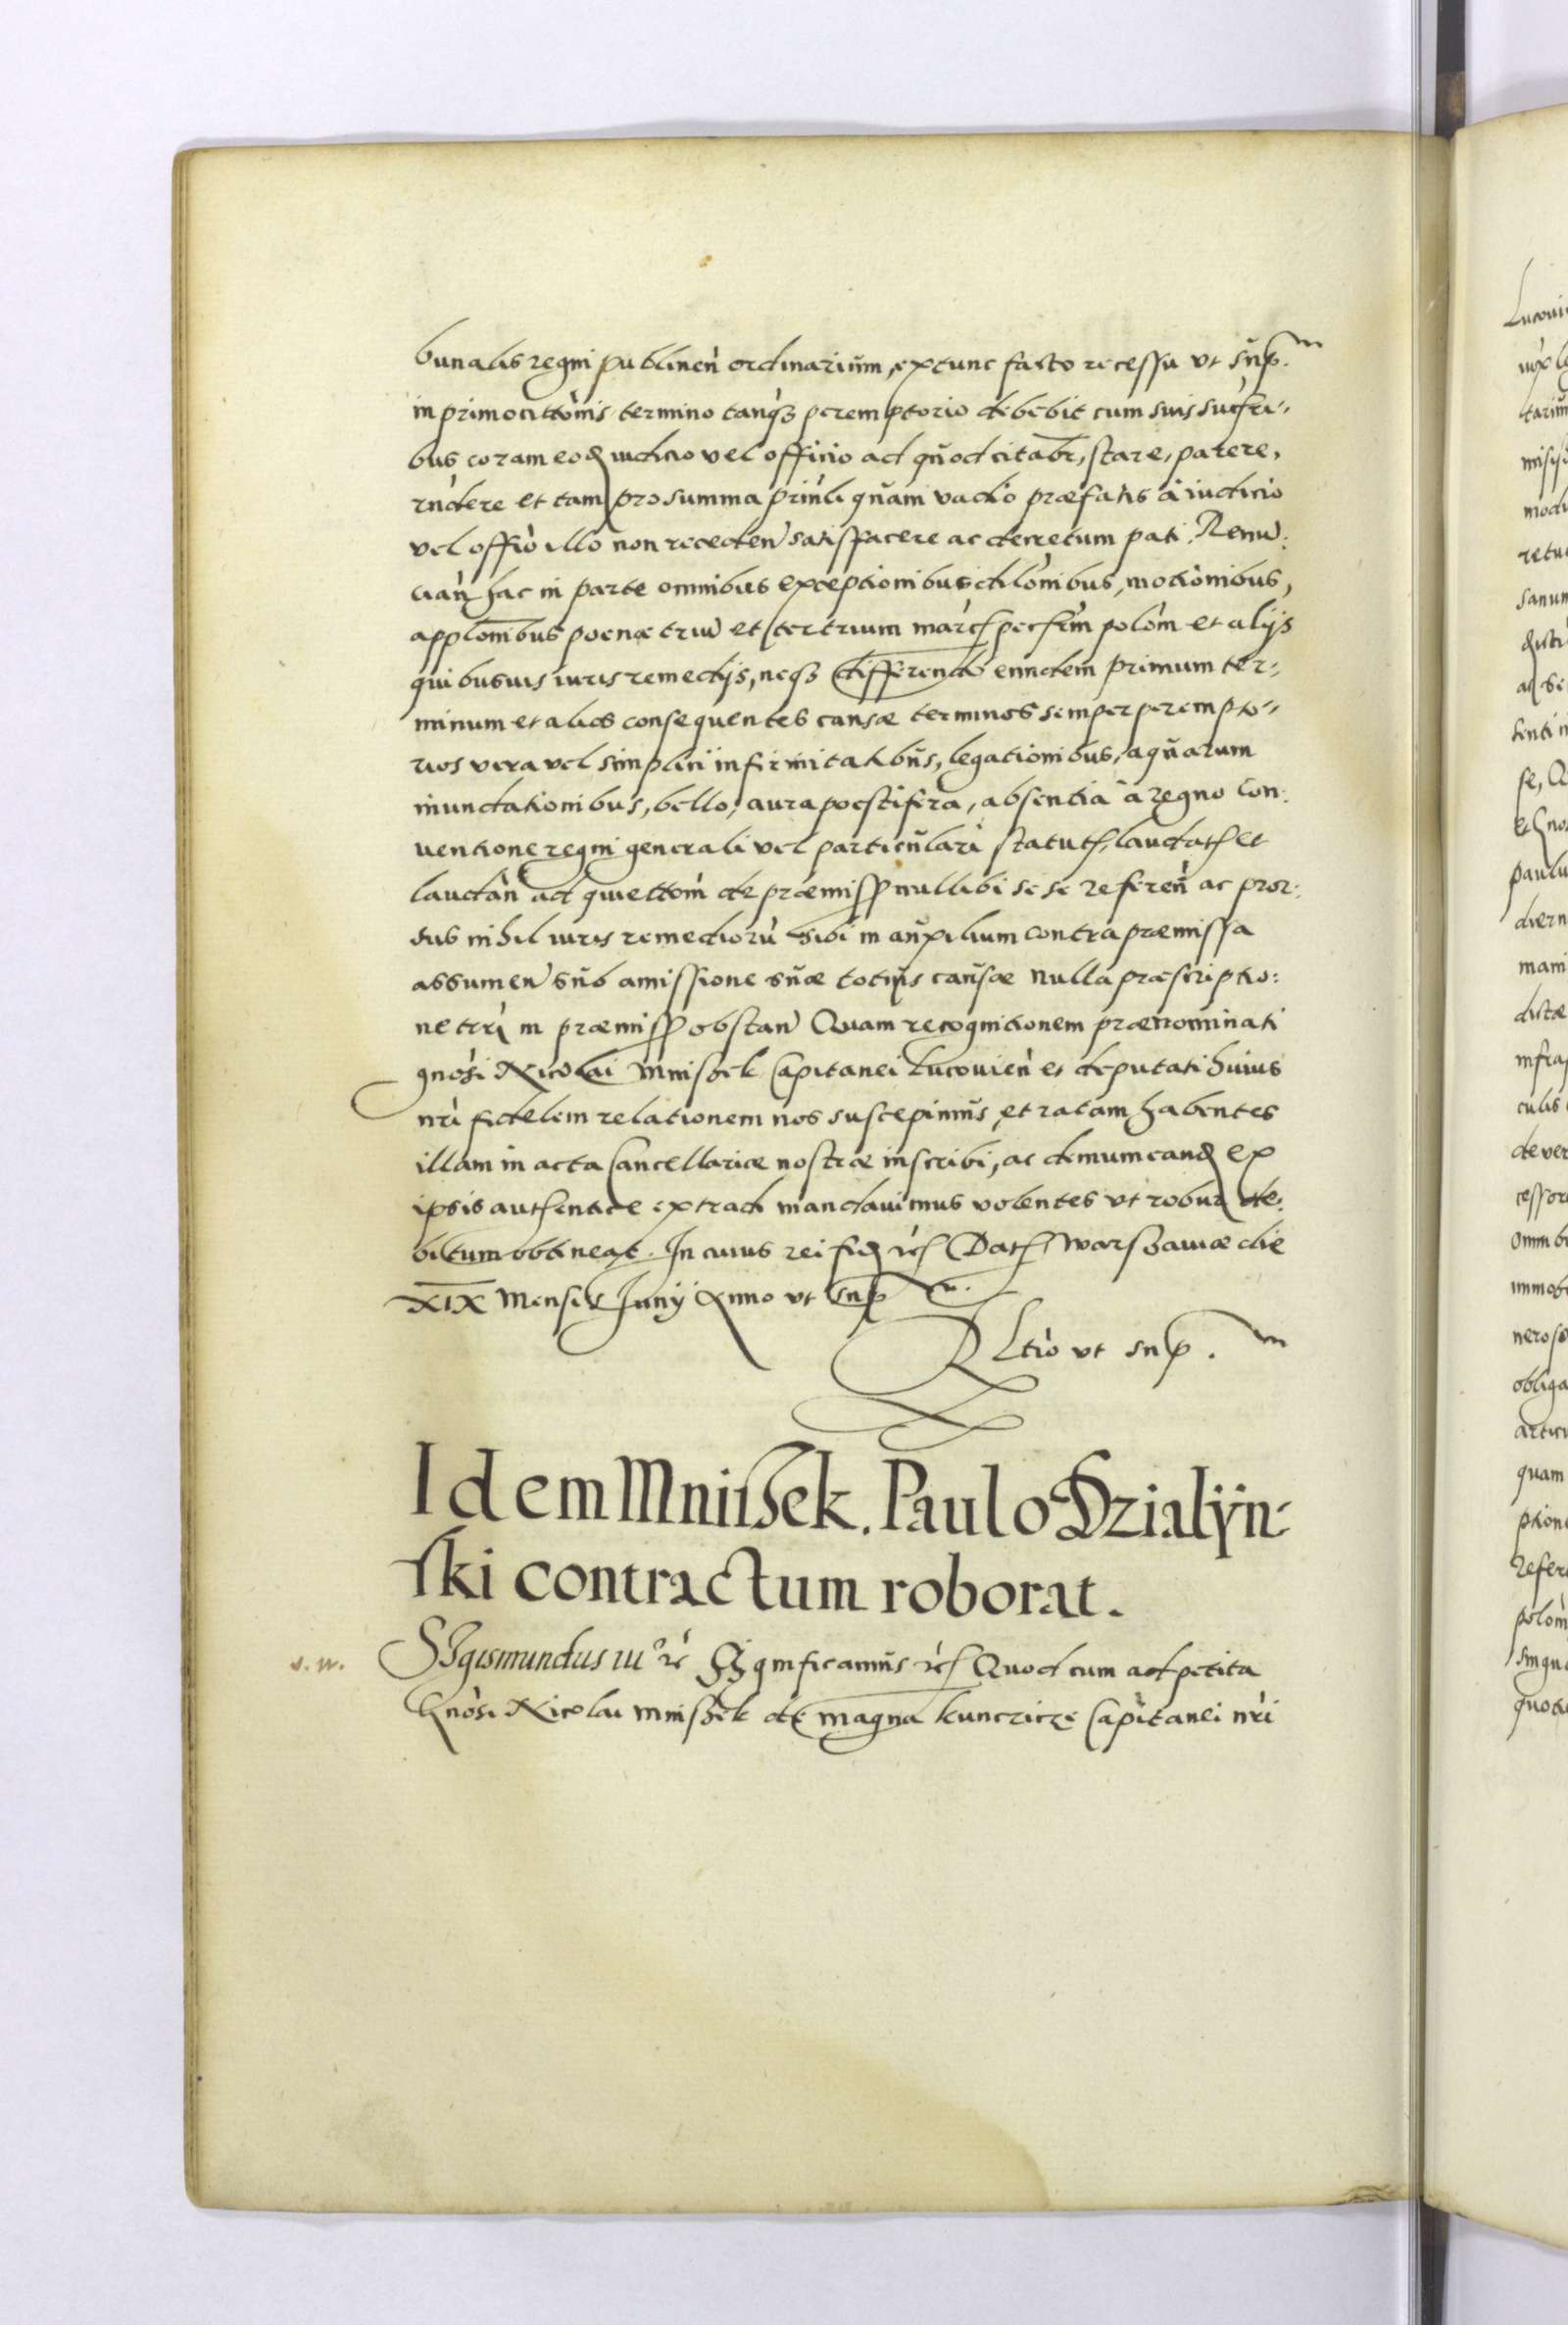 bunalis regni publinen̄ ordinarium, extunc facto recessu vt sup.
in primo citt̄onis termino tanq̄ȝ peremptorio debebit cum suis sucsri-
bus coram eod iudicio vel officio ad quod citabr̄, stare, parere,
rndere et tam pro summa prinli quam vadio præfatis à iudicio
vel offio illo non receden̄ satisfacere ac decretum pati. Renu:
cian̄ hac in parte omnibus exceptionibus dilōnibus, motionibus,
applōnibus poenæ triu et tertrium marc pecsrm polōm et alijs
quibusuis iuris remedijs, neqȝ differendo eundem primum ter-
minum et alios consequentes causæ terminos semper perempto-
rios vera vel simplici infirmitatibus, legationibus, aquarum
inundationibus, bello, aura poestifera, absentia à regno con:
uentione regni generali vel particulari statut, laudat et
laudan̄ ad quiettōm de præmiss nullibi sese referen̄ ac pror:
sus nihil iuris remediorū sibi in auxilium contra præmissa
assumen̄ sub amissione suæ totius causæ nulla præscriptio:
ne trri in præmiss obstan̄ Quam recognitionem prænominati
gnōsi Nicolai Mnisȝek Capitanei Lucouien̄ et deputati huius
nr̄i fidelem relationem nos suscepimus, et ratam habentes
illam in acta Cancellariæ nostræ inscribi, ac demum eand ex
ipsis authentice extradi mandauimus volentes vt robur de:
bitum obtineat. In cuius rei fid rc Dat Warsȝauiæ die
XIX Mensis Junij Anno vt sup
Rltio vt sup.
Idem Mniisȝek. Paulo Dzialÿn-
ski contractum roborat.
v. w. SIgismundus iii° rc Significamus rc Quod cum ad petita
Gnōsi Nicolai Mnisȝek de magna kunczicze Capitanei nr̄i